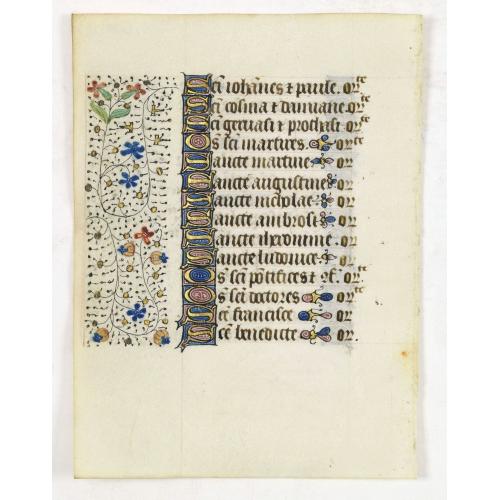 Sci iohānes ⁊ paule. orte
Sci cosma ⁊ damiane. orte
Sci geruasi ⁊ prothasi. orte
Os sci martires. orte
Sancte martine or
Sancte augustine or
Sancte nicholae or
Sancte ambrosi or
Sancte iheronime. or
Sancte ludouice or
Os sci pōtifices ⁊ cf. orte
Os sci doctores orte
Sce francisce or
Sce benedicte or.